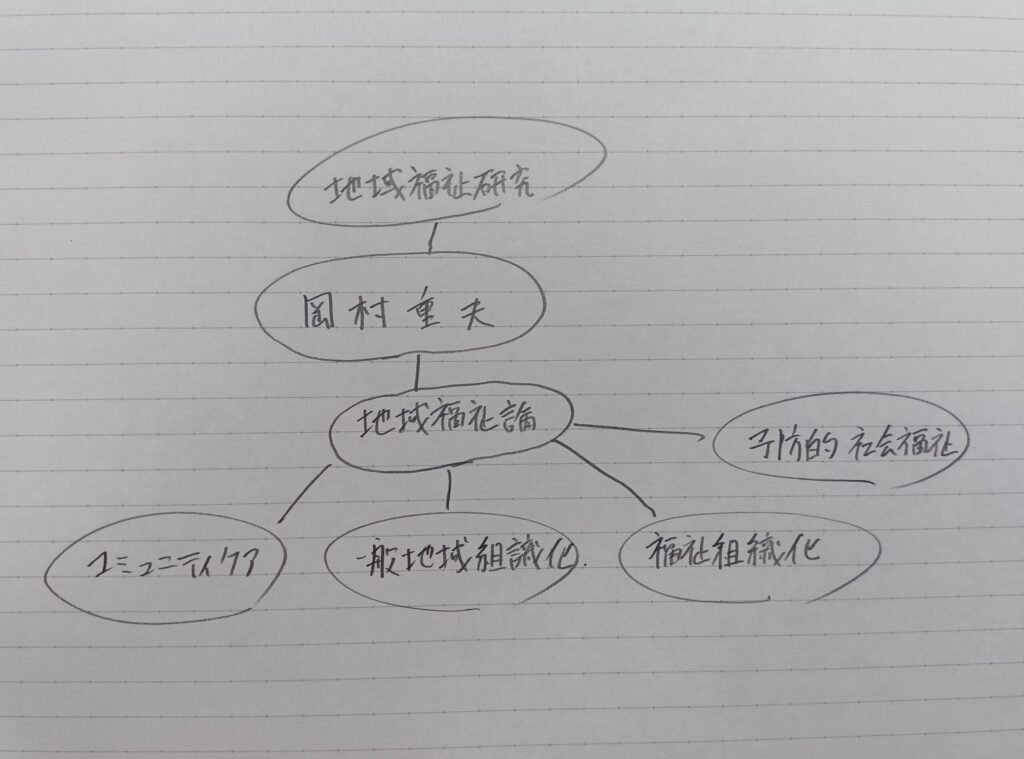 地域福祉研究
岡村重夫
地域福祉論
予防的社会福祉
コミュニティケア
一般地域組識化
福祉組織化